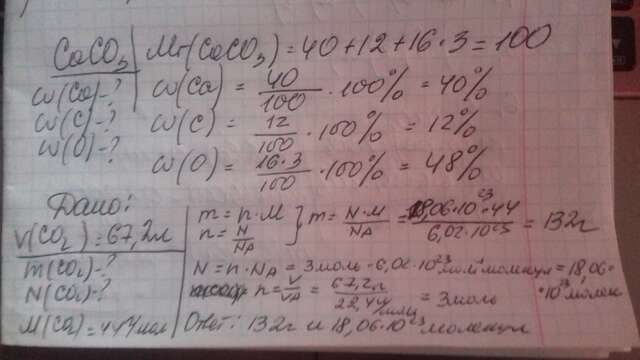 CaCO₃ | Mr(CaCO₃) = 40+12+16·3 = 100
w(Ca)-? w(Ca) = 40/100 · 100% = 40%
w(C)-? w(C) = 12/100 · 100% = 12%
w(O)-? w(O) = 16·3/100 · 100% = 48%
Дано:
V(CO₂) = 67,2л
m(CO₂)-?
N(CO₂)-?
m = n·M
n = N/NA } m = N·M/NA = 18,06·10²³·44/6,02·10²³ = 132г
N = n·NA = 3моль·6,02·10²³ молекул = 18,06·
·10²³ молек
n = V/VA = 67,2л/22,4л/моль = 3моль
Ответ: 132г и 18,06·10²³ молекул